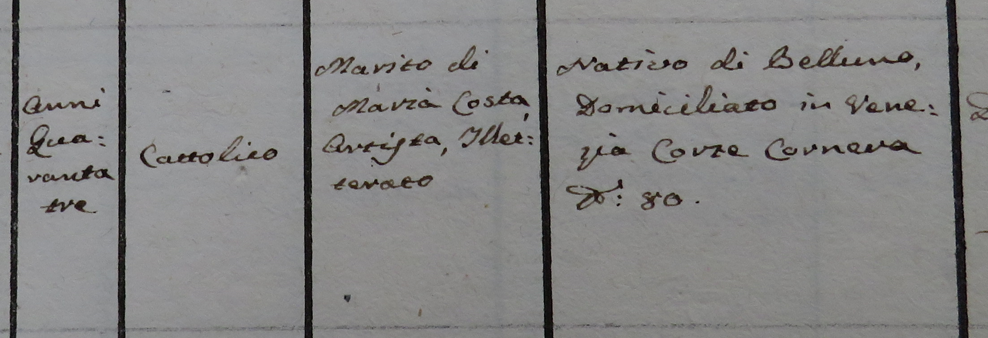 Anni
Qua:
ranta
tre
Cattolico
Marito di
Maria Costa
Artista, Illet:
terato
Nativo di Belluno,
Domiciliato in Vene:
zia Corte Cornera
N.: 80.